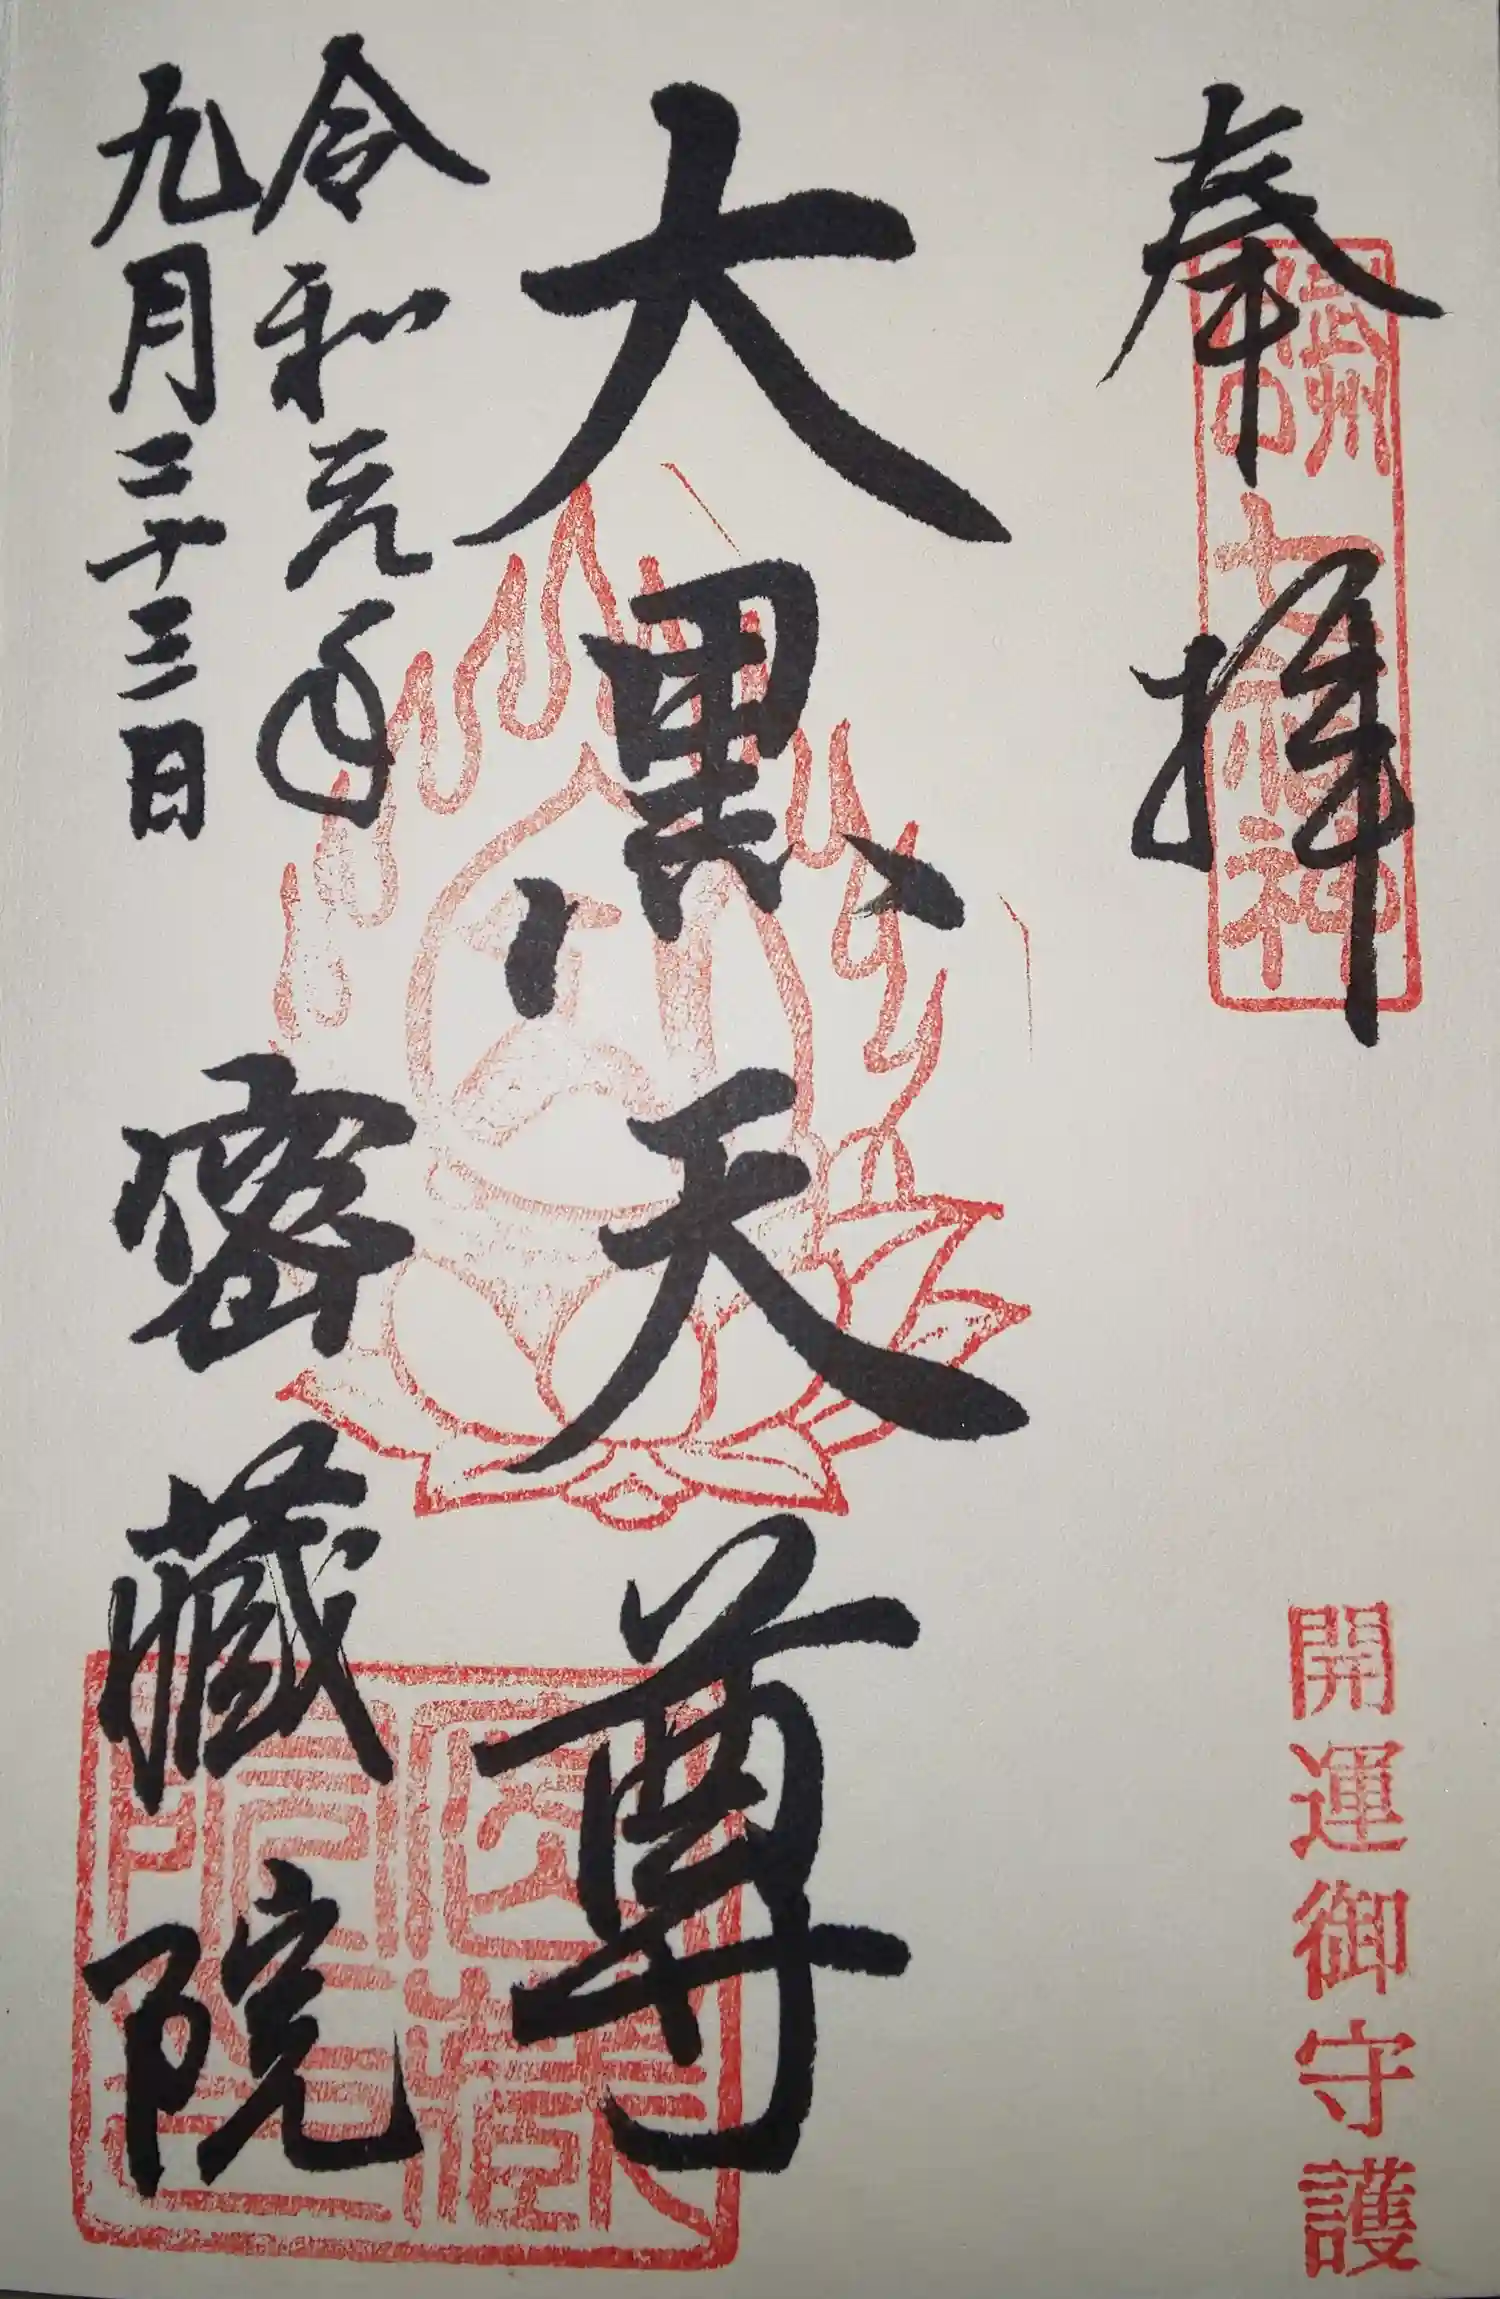 奉拝
武州川口七福神
開運御守護
大黒天尊
令和元年
九月二十三日
密藏院